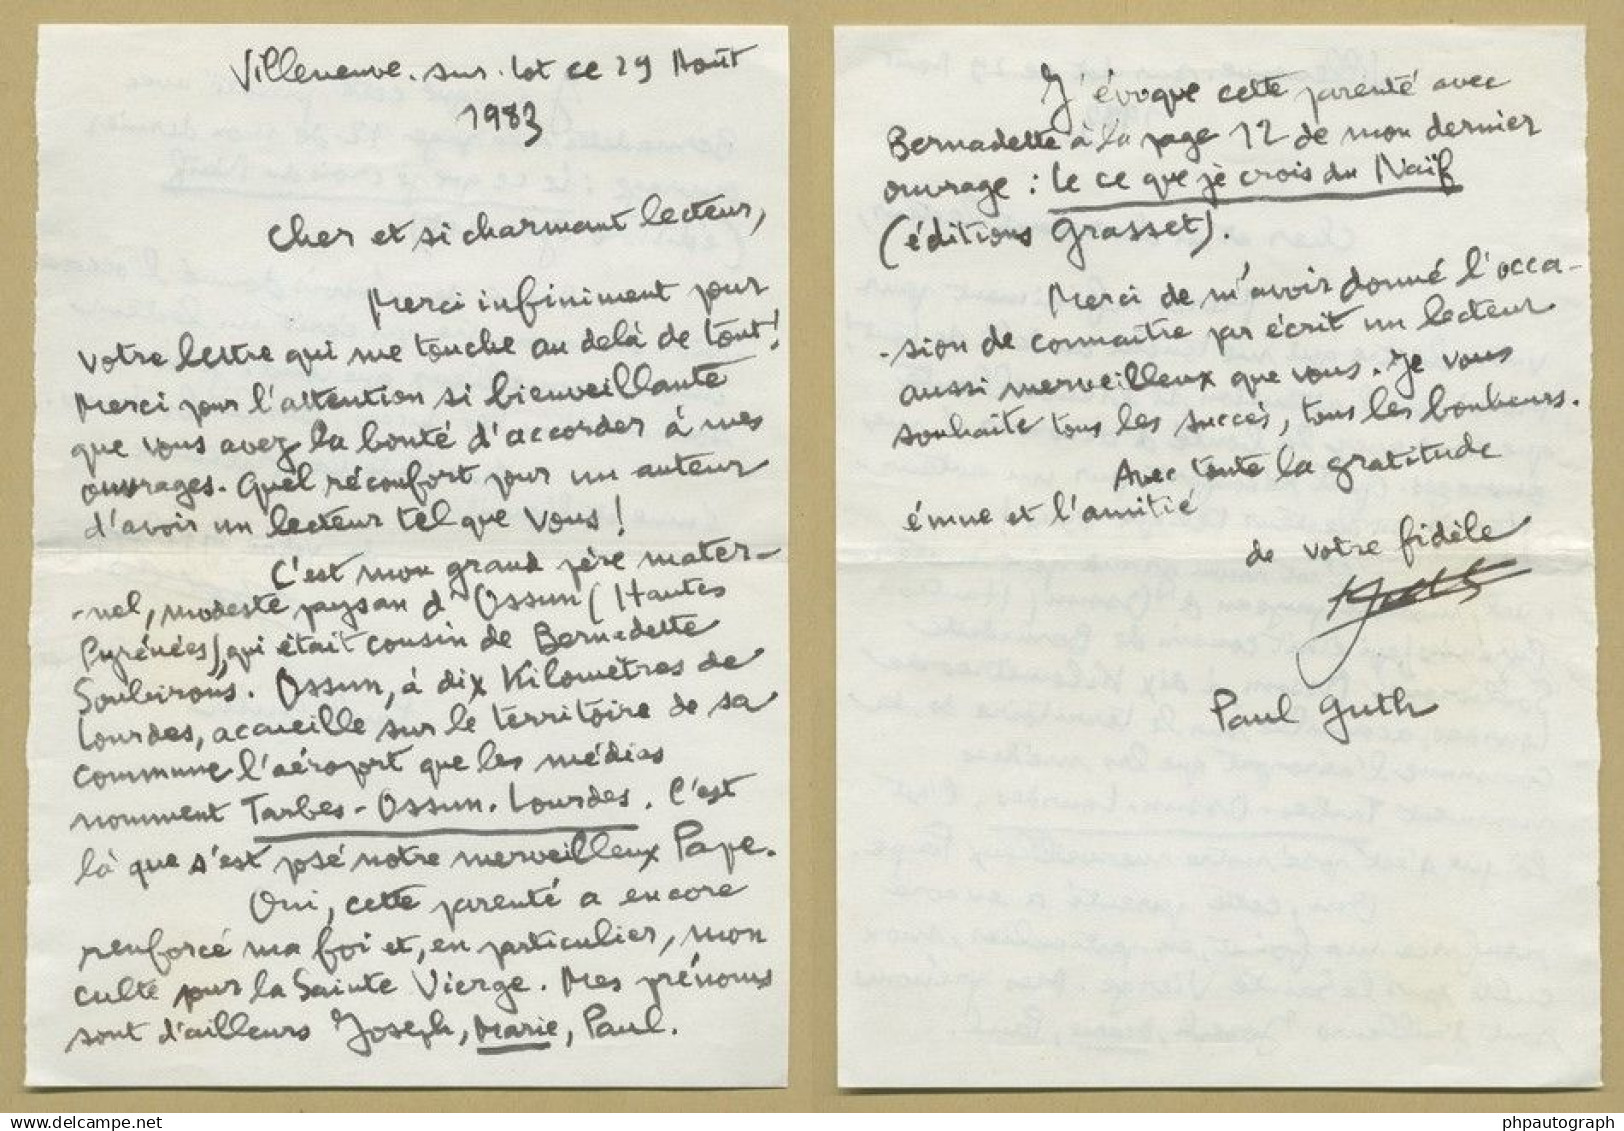 Villeneuve-sur-Lot ce 29 Août
1983
Cher et si charmant lecteur,
Merci infiniment pour
votre lettre qui me touche au delà de tout!
Merci pour l'attention si bienveillante
que vous avez la bonté d'accorder à mes
ouvrages. Quel réconfort pour un auteur
d'avoir un lecteur tel que vous!
C'est mon grand père mater-
-nel, modeste paysan d'Ossun (Hautes
Pyrénées), qui était cousin de Bernadette
Soubirous. Ossun, à dix Kilomètres de
Lourdes, accueille sur le territoire de sa
commune l'aéroport que les médias
nomment Tarbes-Ossun-Lourdes. C'est
là que s'est posé notre merveilleux Pape.
Oui, cette parenté a encore
renforcé ma foi et, en particulier, mon
culte pour la Sainte Vierge. Mes prénoms
sont d'ailleurs Joseph, Marie, Paul.
J'évoque cette parenté avec
Bernadette à la page 12 de mon dernier
ouvrage : Le ce que je crois du Naïf
(éditions Grasset).
Merci de m'avoir donné l'occa-
-sion de connaître par écrit un lecteur
aussi merveilleux que vous. Je vous
souhaite tous les succès, tous les bonheurs.
Avec toute la gratitude
émue et l'amitié
de votre fidèle
Guth
Paul Guth
www.delcampe.net
phpautograph